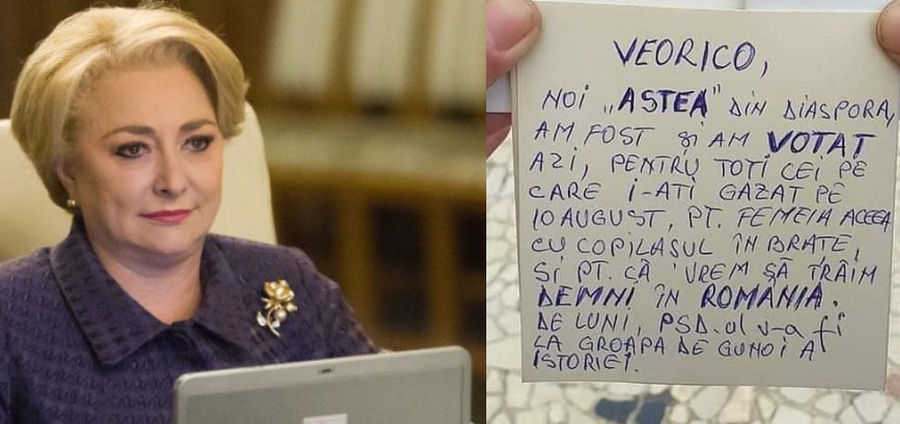 VEORICO,
NOI „ASTEA" DIN DIASPORA,
AM FOST și AM VOTAT
AZI, PENTRU TOTI CEI PE
CARE I-ATI GAZAT PE
10 AUGUST, PT. FEMEIA ACEEA
CU COPILASUL ÎN BRATE,
SI PT. CĂ VREM SĂ TRĂIM
DEMNI ÎN ROMÂNIA.
DE LUNI, PSD-ul v-a fi
LA GROAPA DE GUNOI A
ISTORIEI.